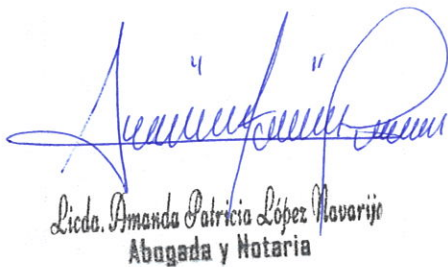 Licda. Amanda Patricia López Navarijo
Abogada y Notaria